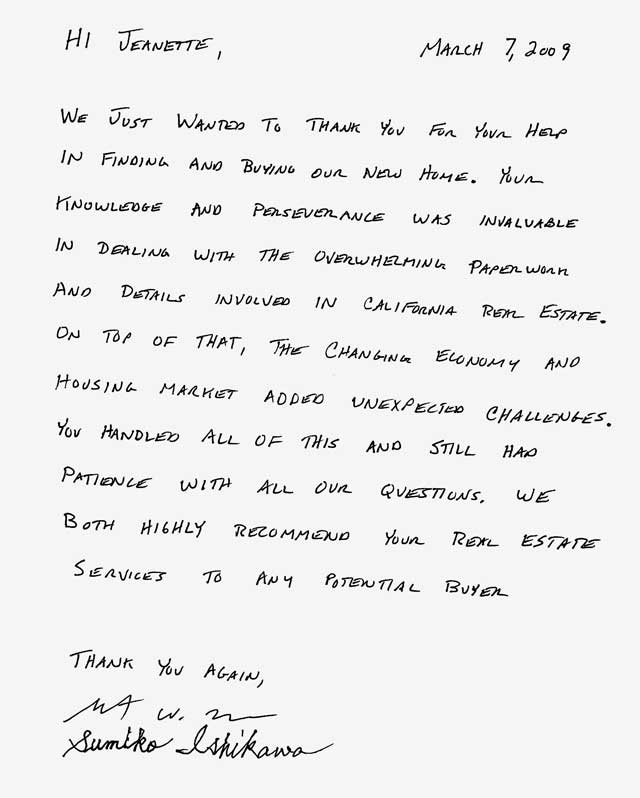 HI JEANETTE,
MARCH 7, 2009
WE JUST WANTED TO THANK YOU FOR YOUR HELP
IN FINDING AND BUYING OUR NEW HOME. YOUR
KNOWLEDGE AND PERSEVERANCE WAS INVALUABLE
IN DEALING WITH THE OVERWHELMING PAPERWORK
AND DETAILS INVOLVED IN CALIFORNIA REAL ESTATE.
ON TOP OF THAT, THE CHANGING ECONOMY AND
HOUSING MARKET ADDED UNEXPECTED CHALLENGES.
YOU HANDLED ALL OF THIS AND STILL HAD
PATIENCE WITH ALL OUR QUESTIONS. WE
BOTH HIGHLY RECOMMEND YOUR REAL ESTATE
SERVICES TO ANY POTENTIAL BUYER
THANK YOU AGAIN,
W.
Sumiko Ishikawa